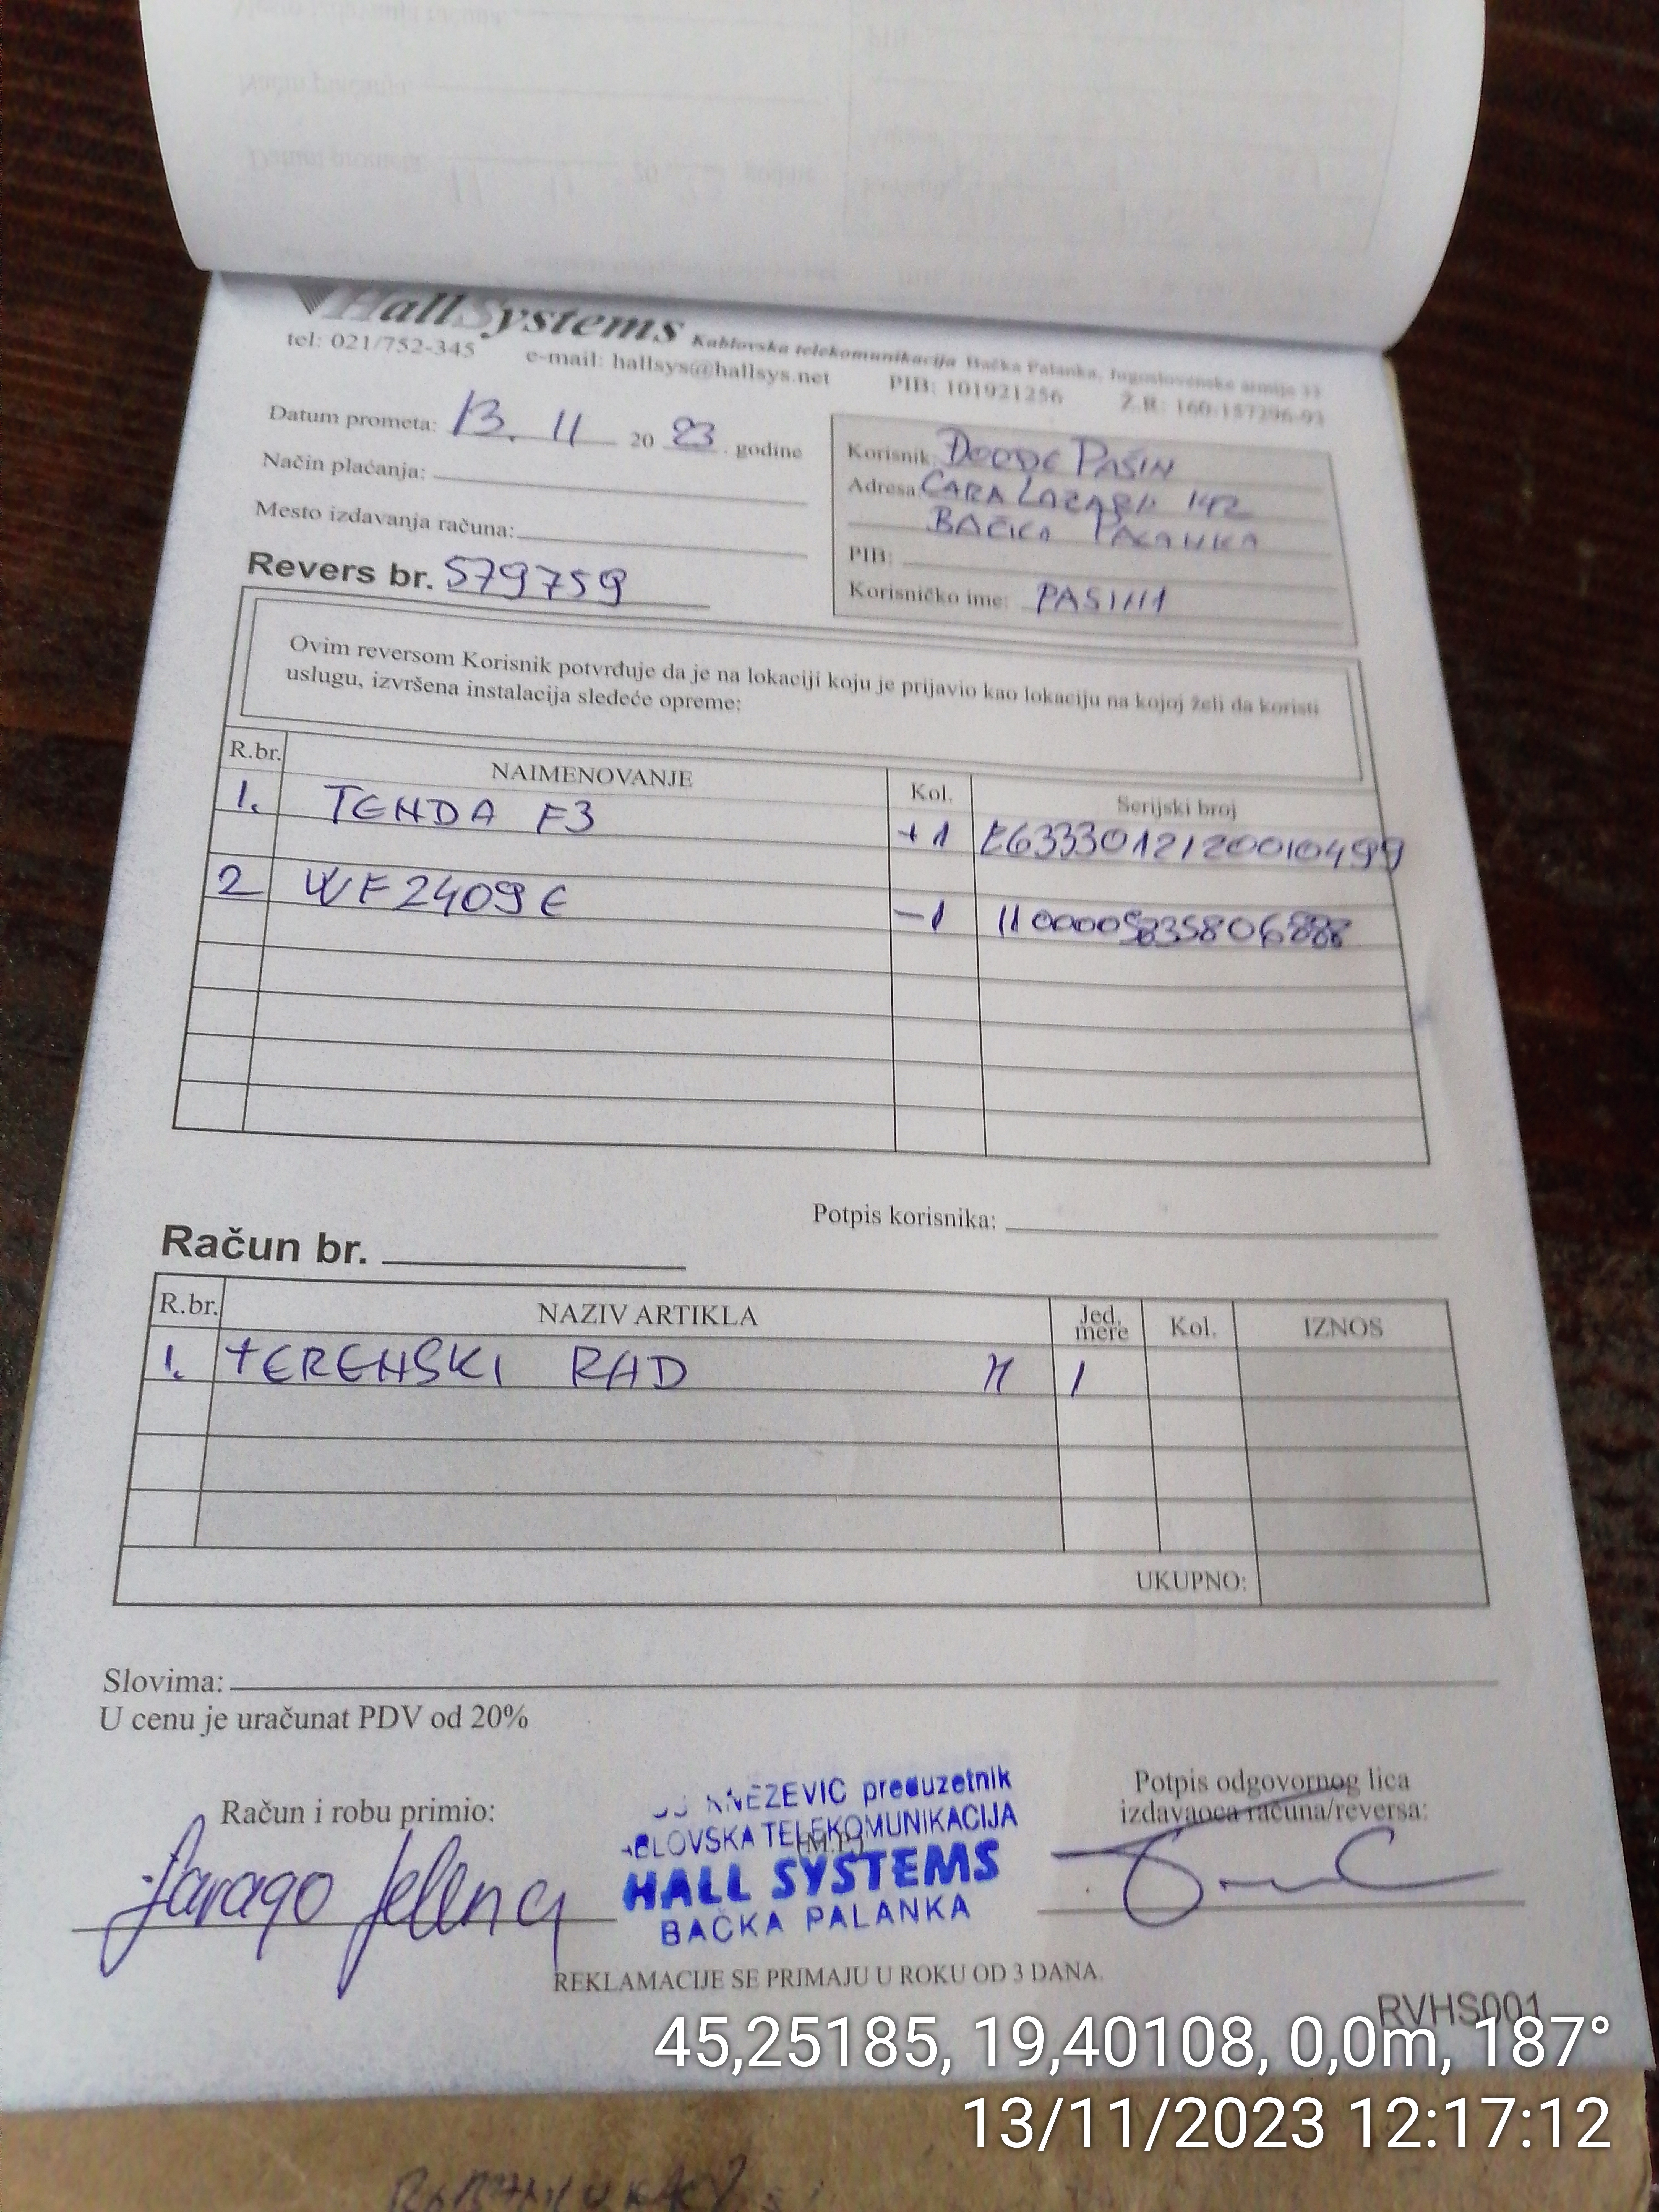 HallSystems Kablovska telekomunikacija Bačka Palanka, Jugoslovenske armije 33
tel: 021/752-345 e-mail: hallsys@hallsys.net PIB: 101921256 Ž.R: 160-157296-93
Datum prometa: 13. 11 20 23. godine
Način plaćanja:
Mesto izdavanja računa:
Revers br. 579759
Korisnik PAŠIN
Adresa CARA LAZARA 142
BAČKA PALANKA
PIB:
Korisničko ime:
Ovim reversom Korisnik potvrđuje da je na lokaciji koju je prijavio kao lokaciju na kojoj želi da koristi
uslugu, izvršena instalacija sledeće opreme:
R.br. NAIMENOVANJE Kol. Serijski broj
1. TENDA F3 +1 E6333012120010499
2 WF2409E -1
Potpis korisnika:
Račun br.
R.br. NAZIV ARTIKLA Jed. mere Kol. IZNOS
1. TERENSKI RAD H 1
UKUPNO:
Slovima:
U cenu je uračunat PDV od 20%
Račun i robu primio:
KNEZEVIC preduzetnik
TELEKOMUNIKACIJA
(M.P.)
HALL SYSTEMS
BAČKA PALANKA
Potpis odgovornog lica
izdavaoca računa/reversa:
Jelena
REKLAMACIJE SE PRIMAJU U ROKU OD 3 DANA.
RVHS001
45,25185, 19,40108, 0,0m, 187°
13/11/2023 12:17:12